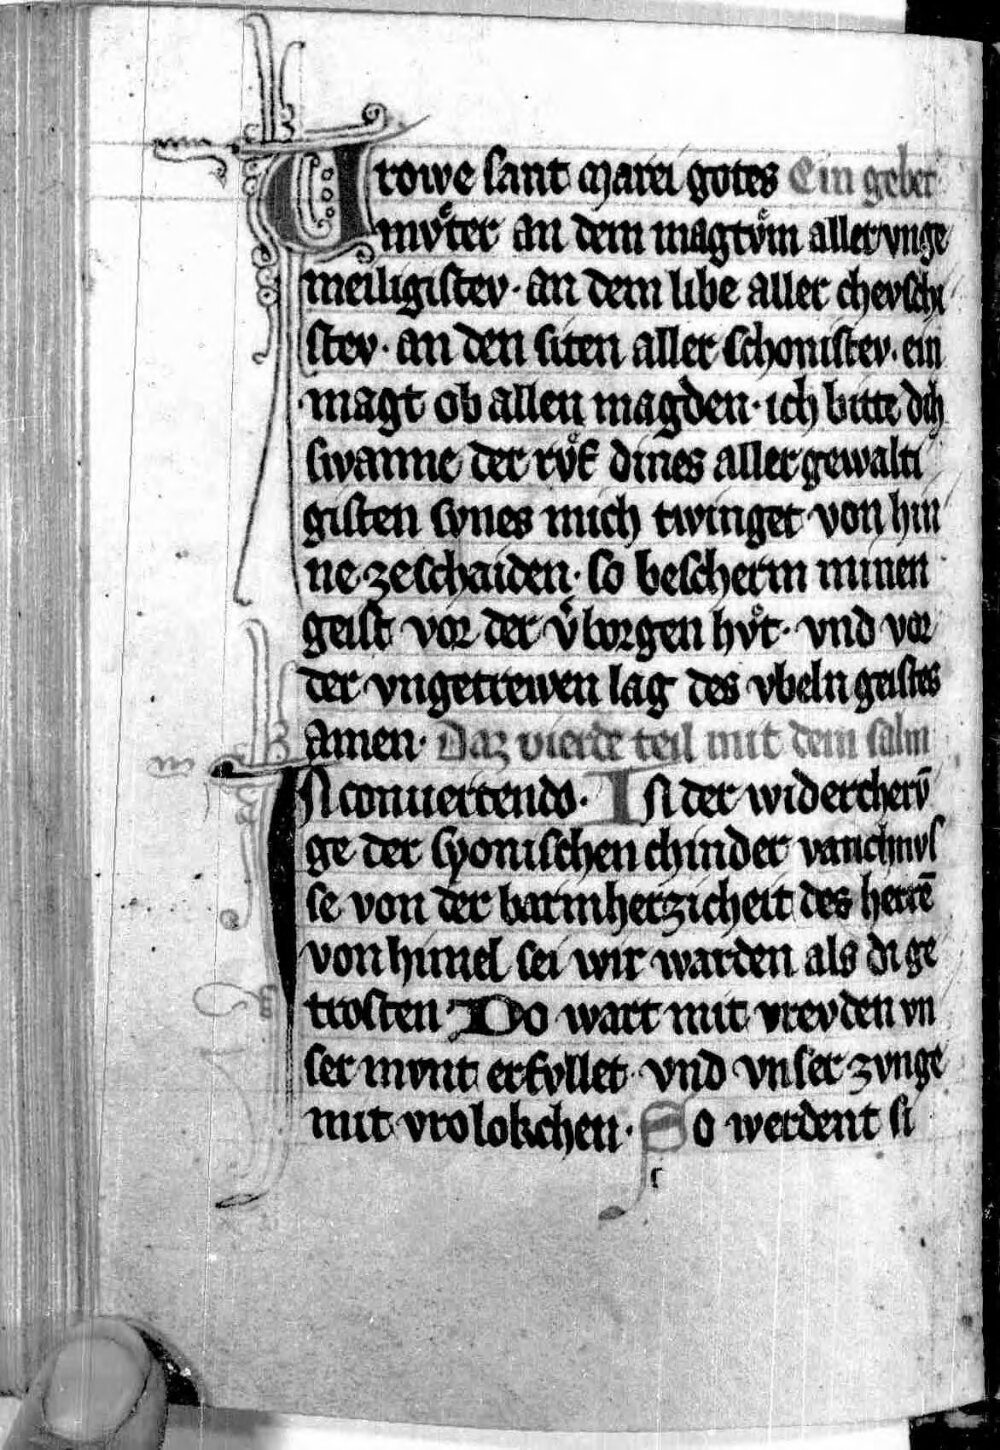 Vrowe sant Marei gotes Ein gebet
mvͦter an dem magtvͦm aller vnge
meiligistev · an dem libe aller chevschi
stev · an den siten aller schonistev · ein
magt ob allen magden · ich bitte dich
swanne der rvͦf dines aller gewalti
gisten synes mich twinget von hin
ne zeschaiden · so bescherm minen
geist vor der v͛borgen hvͦt · vnd vor
der vngetrewen lag des vbeln geistes
amen · Daz vierde teil mit dem salm
In conuertendo · In der widercherv̄
ge der syonischen chinder vanchnvs
se von der barmherzicheit des herrē
von himel sei wir warden als di ge
trosten Do wart mit vrevden vn
ser mvnt erfvllet · vnd vnser zvnge
mit vrolokchen · So werdent si